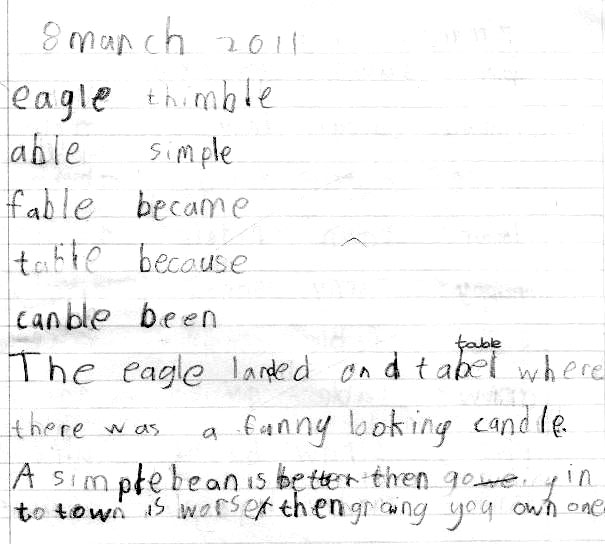 8 march 2011
eagle thimble
able simple
fable became
table because
canble been
table
The eagle landed on d tabel where
there was a funny looking candle.
A simple bean is better then going in
to town is worser then growing you own one